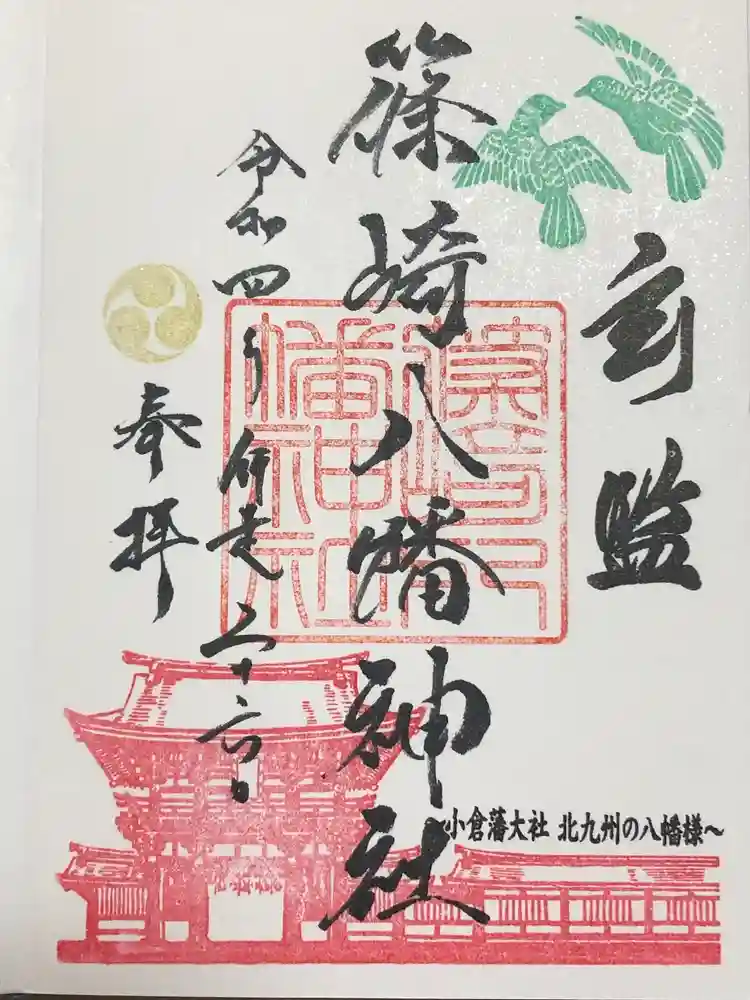 監
篠崎八幡神社
篠崎八
幡神社
令和四年 師走 二十六日
奉拝
小倉藩大社 北九州の八幡様～